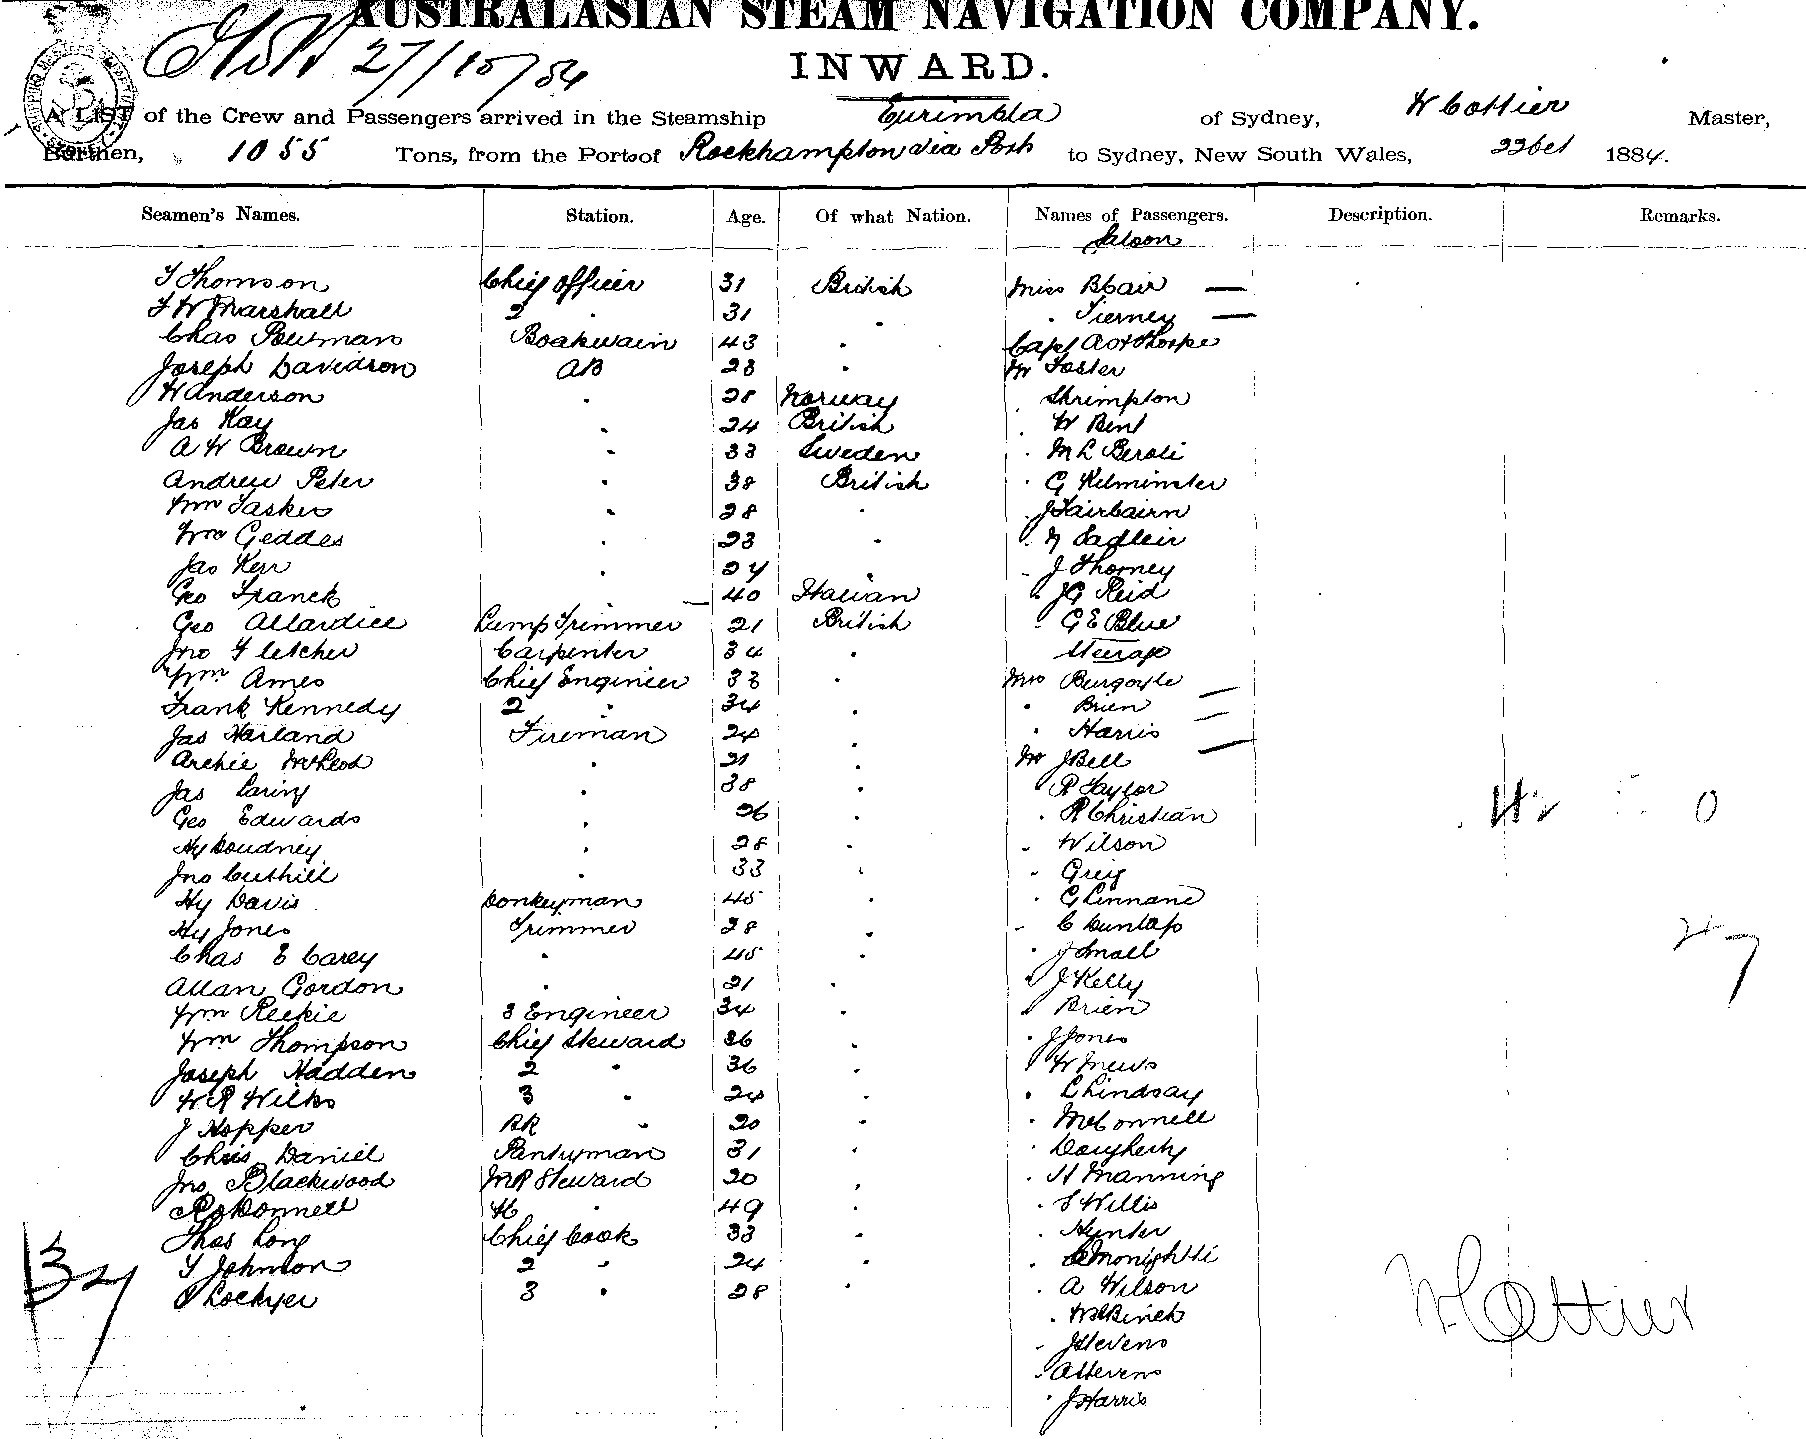 AUSTRALASIAN STEAM NAVIGATION COMPANY.
27/10/84
INWARD.
A LIST of the Crew and Passengers arrived in the Steamship Eurimbla of Sydney, W Cottier Master,
Burthen, 1055 Tons, from the Port of Rockhampton via Ports to Sydney, New South Wales, 22 Oct 1884.
Seamen's Names. Station. Age. Of what Nation. Names of Passengers. Description. Remarks.
Saloon
T Thomson Chief Officer 31 British Miss Blair —
F W Marshall 2 " 31 " " Tierney —
Chas Bowman Boatswain 43 " Capt Thorpe
Joseph Davidson AB 23 " Mr Foster
H Anderson " 28 Norway " Shrimpton
Jas Kay " 24 British " W Bent
A W Brown " 33 Sweden " M L
Andrew Peter " 38 British " G Kelminster
Wm Tasker " 28 " " J Fairbairn
Wm Geddes " 23 " " Sadleir
Jas Kerr " 24 " " J Thorney
Geo Franck " 40 Italian " J G Reid
Geo Allardice Lamp Trimmer 21 British " G E Blue
Jno Fletcher Carpenter 34 " Steerage
Wm Ames Chief Engineer 33 " Mrs Burgoyle
Frank Kennedy 2 " 34 " " Brien
Jas Harland Fireman 24 " " Harris
Archie McLeod " 21 " Mr J Bell
Jas Laing " 38 " " R Taylor
Geo Edwards " 26 " " R Christian
Hy Doudney " 28 " " Wilson
Jno Cuthill " 33 " " Greig
Hy Davis Donkeyman 45 " " G Linnane
Hy Jones Trimmer 28 " " C Dunlap
Chas E Carey " 45 " " J Small
Allan Gordon " 21 " " J Kelly
Wm Reekie 3 Engineer 34 " " Brien
Wm Thompson Chief Steward 36 " " J Jones
Joseph Hadden 2 " 36 " " W Mews
W R Wilks 3 " 24 " " C Lindsay
J Hopper BR " 20 " " McConnell
Chris Daniel Pantryman 31 " " Dougherty
Jno Blackwood MR Steward 20 " " H Manning
R O'Donnell " 49 " " S Willis
Thos Long Chief Cook 33 " " Hynter
T Johnson 2 " 24 "
P Lockyer 3 " 28 " " A Wilson
37
" Binch
" J Stevens
" A Stevens
" J Harris
W Cottier